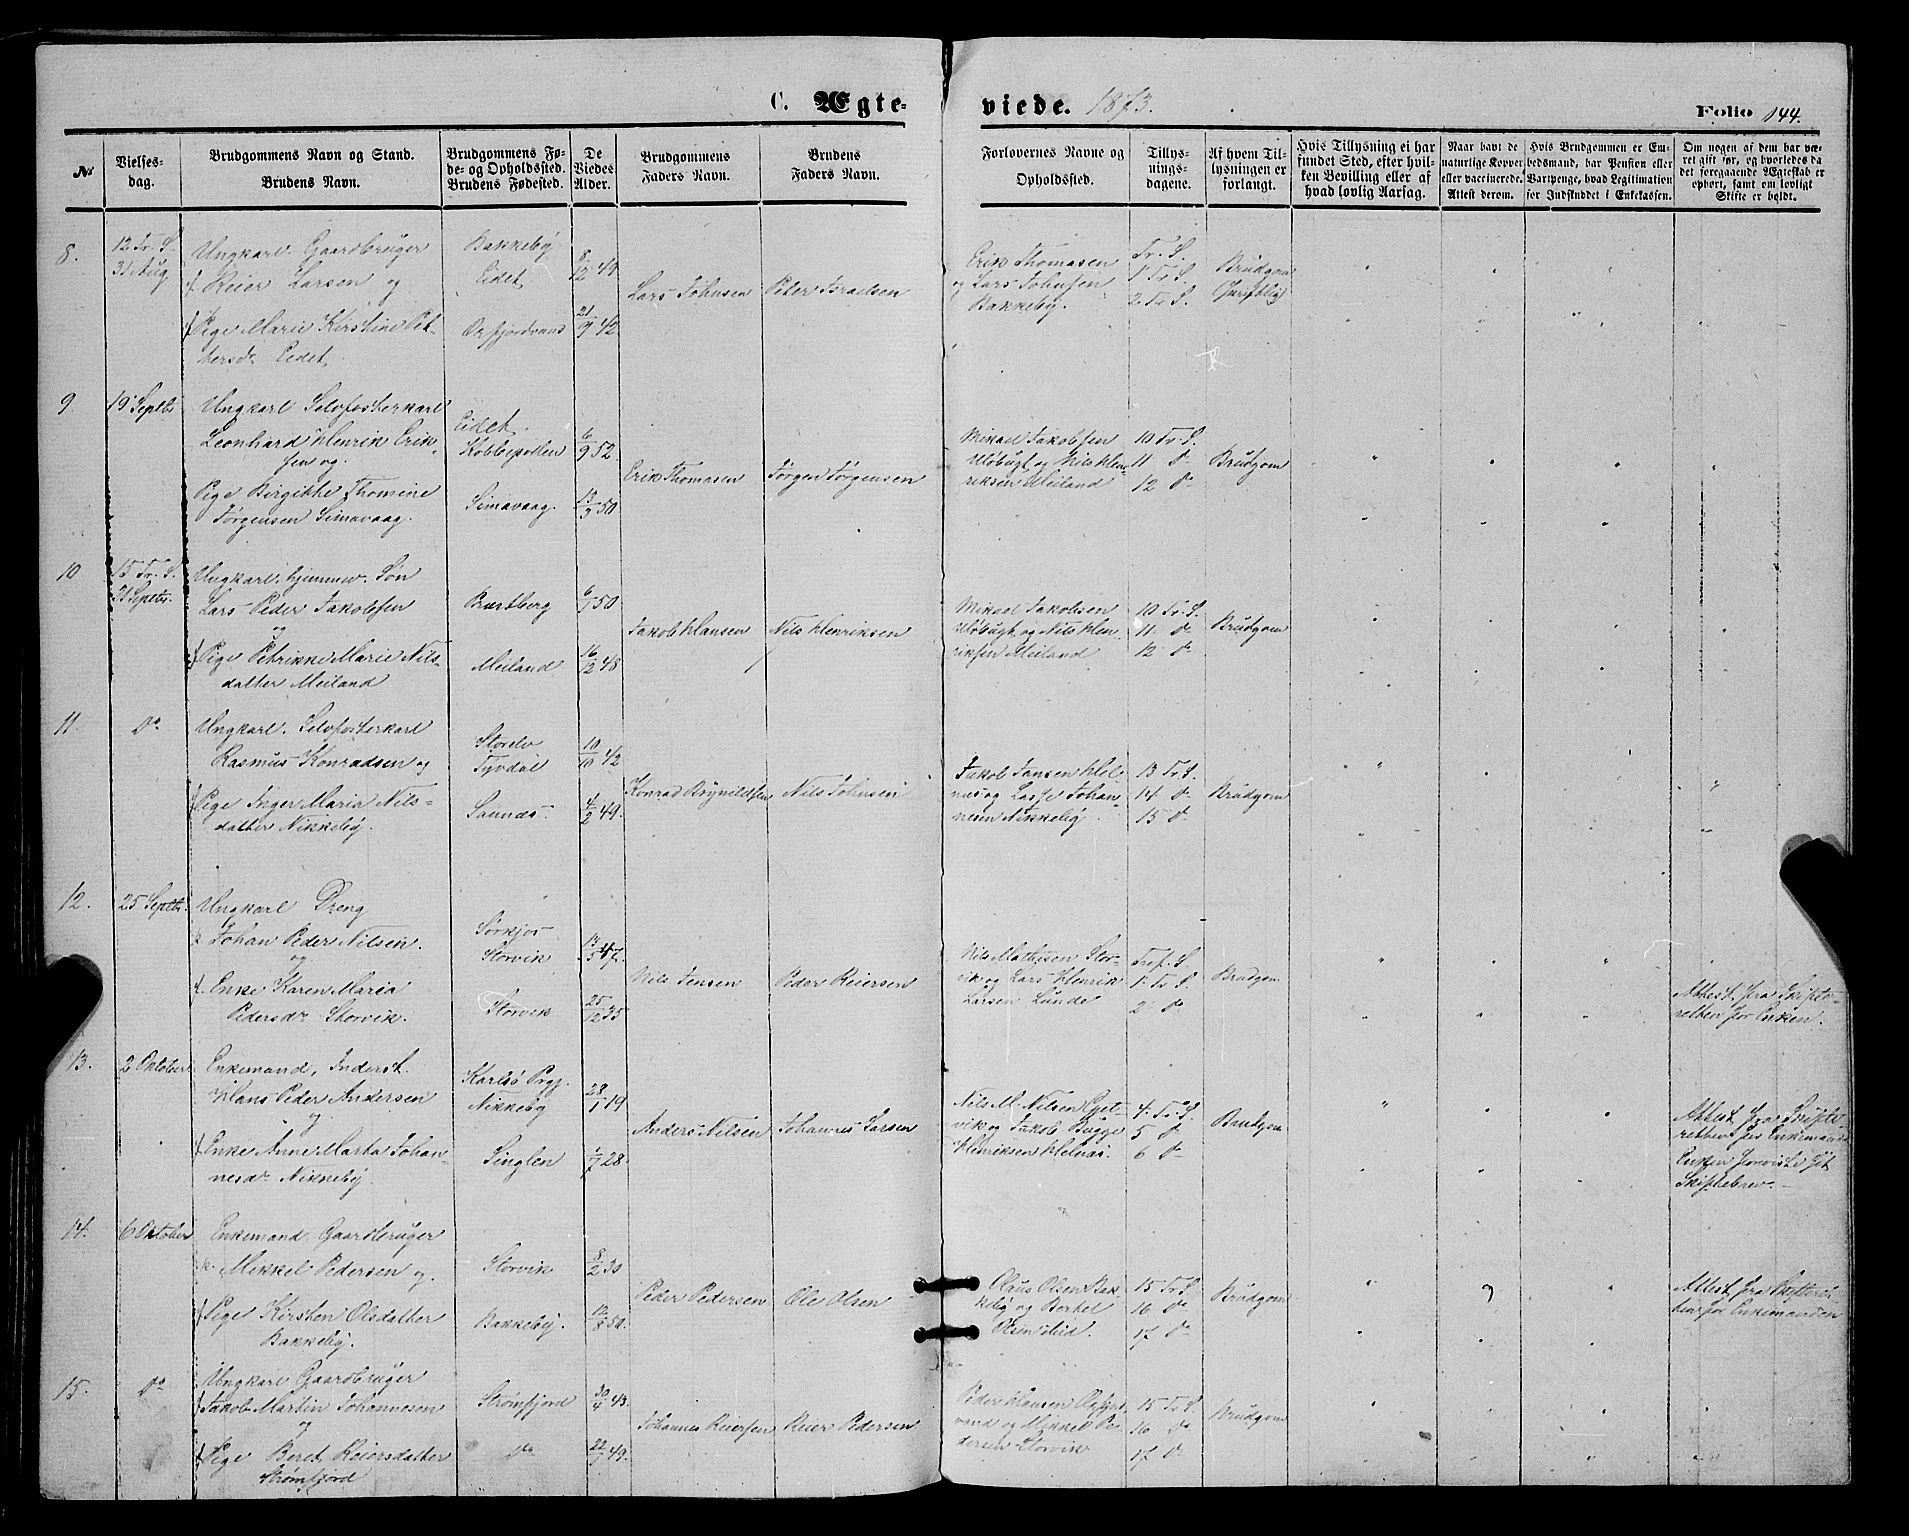 C. Ægte-
viede. 1873.
Folio 144.
No
Vielses-
dag.
Brudgommens Navn og Stand.
Brudens Navn.
Brudgommens Fø-
de- og Opholdssted.
Brudens Fødested.
De
Viedes
Alder.
Brudgommens
Faders Navn.
Brudens
Faders Navn.
Forlovernes Navne og
Opholdssted.
Tillys-
nings-
dagene.
Af hvem Til-
lysningen er
forlangt.
Hvis Tillysning ei har
fundet Sted, efter hvil-
ken Bevilling eller af
hvad lovlig Aarsag.
Naar havt de
naturlige Kopper
eller vaccinerede.
Attest derom.
Hvis Brudgommen er Em-
bedsmand, har Pension eller
Vartpenge, hvad Legitimation
for Indskuddet i Enkekassen.
Om nogen af dem har væ-
ret gift før, og hvorledes da
det foregaaende Ægteskab er
ophørt, samt om lovligt
Skifte er holdt.
8.
12 Tr. S.
31 Aug
Ungkarl. Gaardbruger
Reier Larsen og
Pige Marie Kirstine Pet-
tersdr Eidet
Bakkeby
Eidet
8/12 49
21/9 42
Lars Johnsen
Peter Israelsen
Erik Thomasen
og Lars Johnsen
Bakkeby.
Tr. S.
1 Tr. S.
2 Tr. S.
Brudgom
9.
19 Septbr
Ungkarl Selvfosterkarl
Leonhard Henrik Erik-
sen og
Pige Birgitte Thomine
Jørgensen Simavaag.
Eidet
Kobbepollen
Simavaag.
6/9 52
13/9 50
Erik Thomasen
Jørgen Jørgensen
Mikael Jakobsen
Uløbugt og Nils Hen-
riksen Meiland
10 Tr. S.
11 do
12 do
Brudgom
10
15 Tr. S.
21 Septbr.
Ungkarl. hjemmev. Søn
Lars Peder Jakobsen
og
Pige Petrikke Marie Nils-
datter Meiland
Meiland
6/1 50
16/12 48
Jakob Hansen
Nils Henriksen
Mikael Jakobsen
Uløbugt og Nils Hen-
riksen Meiland
10 Tr. S.
11 do
12 do
Brudgom
11.
do
Ungkarl. Selvfosterkarl
Rasmus Konradsen og
Pige Inger Maria Nils-
datter Nikkeby.
Storelv
Tyvdal
10/10 42
4/2 49
Konrad Brynildsen
Nils Johnsen
Jakob Jansen Hel-
nes og Lasse Johan-
nesen Nikkeby
13 Tr. S.
14 do
15 do
Brudgom
12.
25 Septbr.
Ungkarl Dreng
Johan Peder Nilsen.
og
Enke Karen Maria
Pedersdr Storvik.
Sørkjos
Storvik
Storvik
13/5 47
25/12 35
Nils Jensen
Peder Reiersen
Nils Mathisen Stor-
vik og Lars Henrik
Larsen Lunde
Tref. S.
1 Tr S
2 do
Brudgom
Attest fra Skifte-
retten for Enken.
13.
2 Oktober
Enkemand, Inderst.
Hans Peder Andersen
og
Enke Anne Marta Johan-
nesdr Nikkeby
Karlsø Prgj.
Nikkeby
Singlen
28/1 19
28.
Anders Nilsen
Johannes Larsen
Nils M. Nilsen
vik og Jakob Bugge
Henriksen Helnæs.
4 Tr. S.
5 do
6 do
Brudgom
Attest fra Skifte-
retten for Enkemand
Enken
Skiftebrev.
14.
6 Oktober
Enkemand Gaardbruger
Mikkel Pedersen og
Pige Kirsten Olsdatter
Bakkeby.
Storvik
Bakkeby.
8/2 30
12/8 50.
Peder Pedersen
Ole Olsen
Olaus Olsen Bak-
keby og Berhel
Olsen
15 Tr S
16 do
17 do
Brudgom
Attest fra Skifteret-
ten for Enkemanden
15.
do
Ungkarl Gaardbruger
Jakob Martin Johannesen
og
Pige Beret Reiersdatter
Strømfjord
Strømfjord
do
30/4 43.
22/1 49.
Johannes Reiersen
Reier Pedersen
Peder Hansen
vand og Mikkel Pe-
dersen Storvik
15 Tr S
16 do
17 do
Brudgom